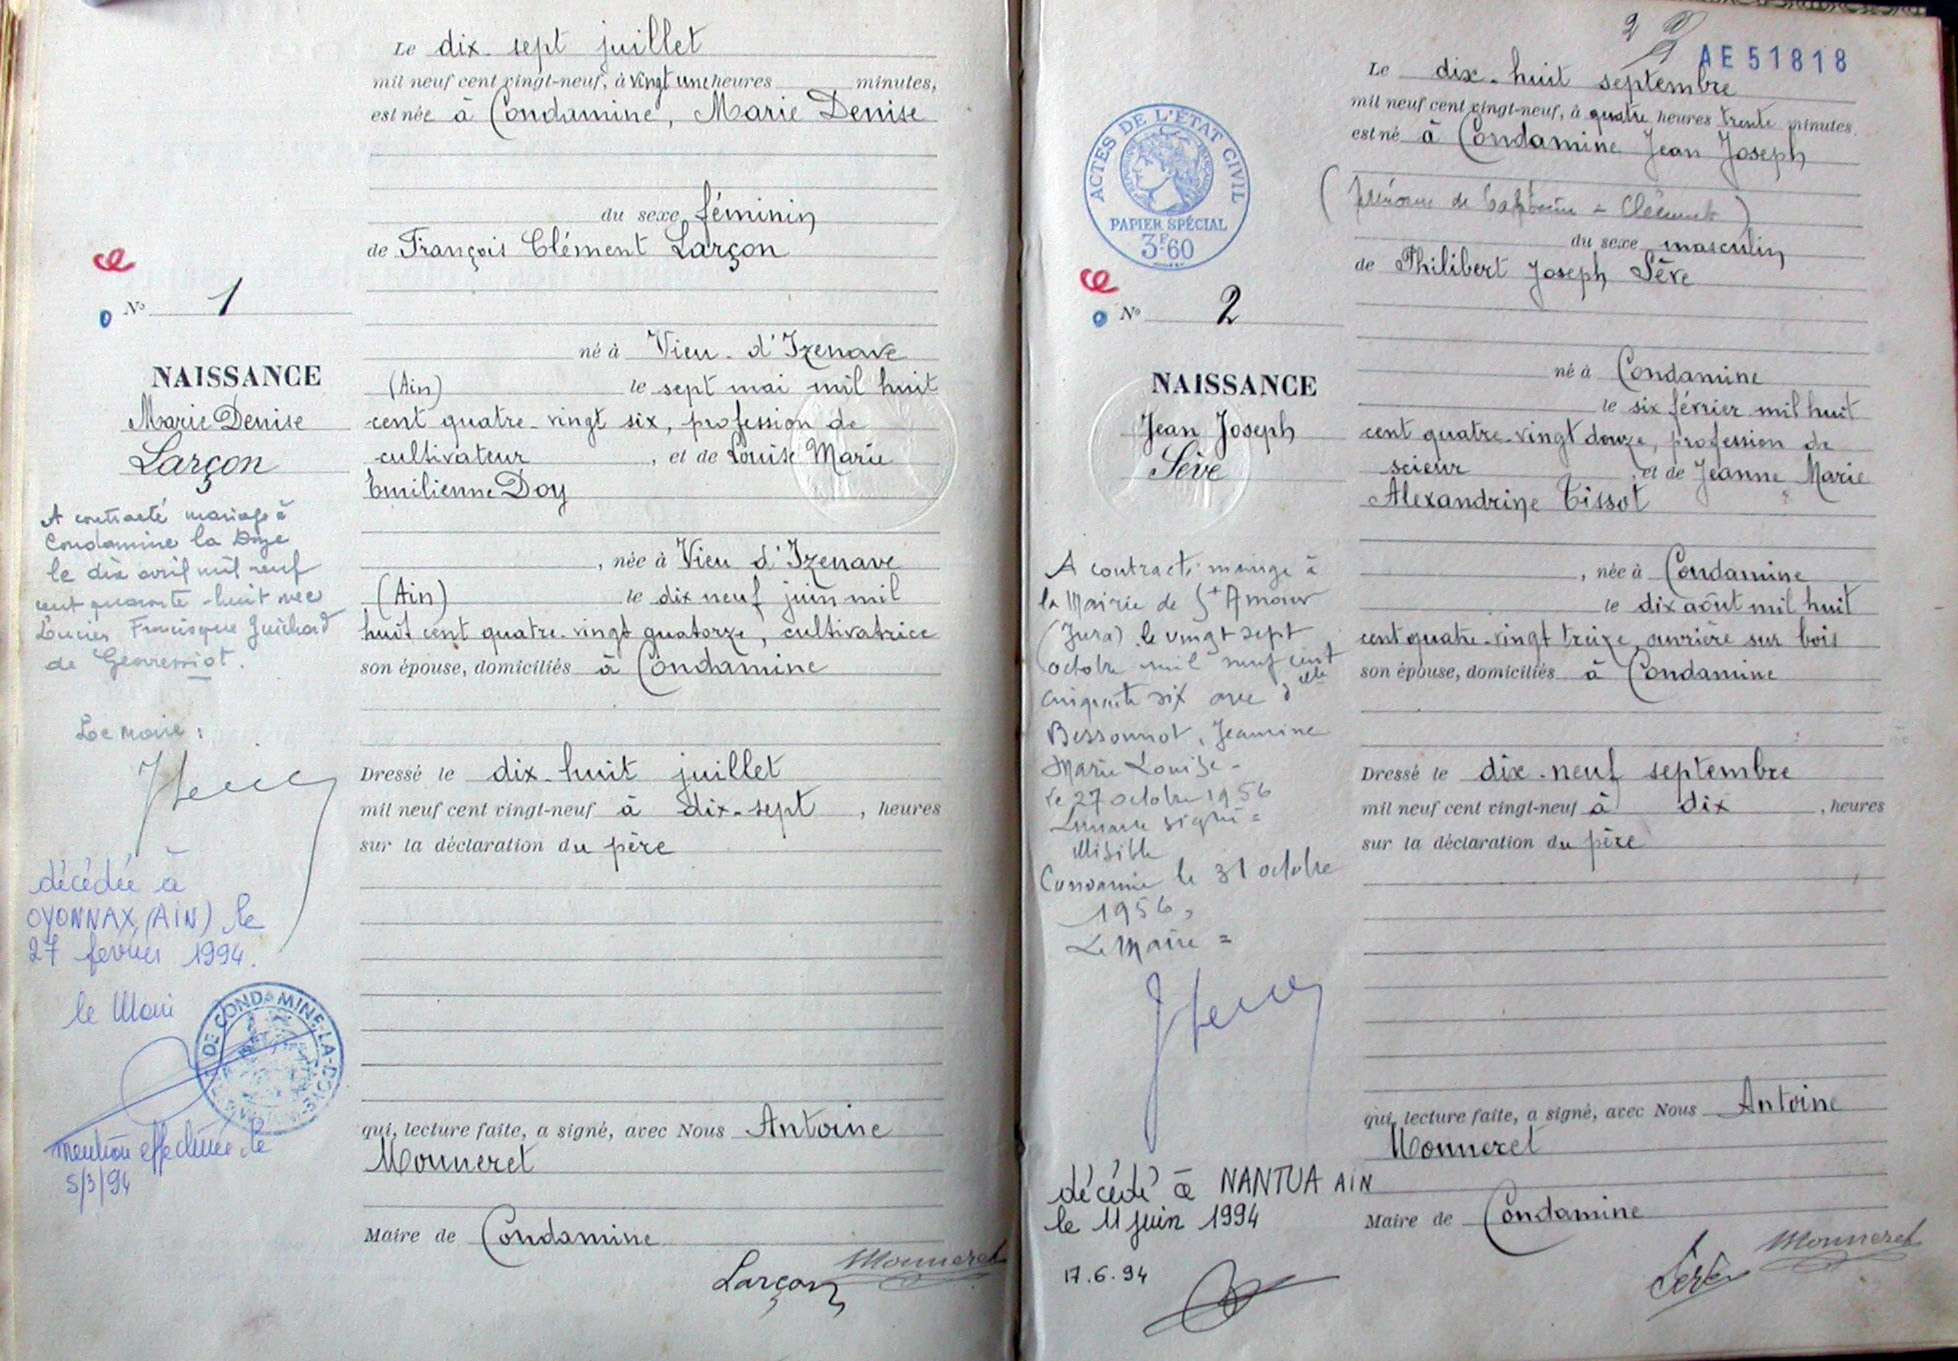 Le dix-sept juillet
mil neuf cent vingt-neuf, à vingt une heures minutes,
est née à Condamine, Marie Denise
du sexe féminin
de François Clément Larçon
N° 1
né à Vieu-d'Izenave
NAISSANCE
(Ain) le sept mai mil huit
Marie Denise
cent quatre-vingt six, profession de
Larçon
cultivateur, et de Louise Marie
Emilienne Doy
A contracté mariage à
Condamine la Doye
le dix avril mil neuf
cent quarante-huit avec
Lucien Francisque Guichard
de Géovressiat.
, née à Vieu d'Izenave
(Ain) le dix neuf juin mil
huit cent quatre-vingt quatorze, cultivatrice
son épouse, domiciliés à Condamine
Le maire :
Dressé le dix-huit juillet
mil neuf cent vingt-neuf à dix-sept, heures
sur la déclaration du père
décédée à
OYONNAX (AIN) le
27 février 1994.
le Maire
DE CONDAMINE-LA-DOYE
mention effectuée le
5/3/94
qui, lecture faite, a signé, avec Nous Antoine
Monneret
Maire de Condamine
Larçon Monneret
2
AE 51818
Le dix-huit septembre
mil neuf cent vingt-neuf, à quatre heures trente minutes,
est né à Condamine Jean Joseph
(prénom de baptême = Clément)
du sexe masculin
de Philibert Joseph Sève
ACTES DE L'ÉTAT CIVIL
PAPIER SPÉCIAL
3F60
N° 2
né à Condamine
NAISSANCE
le six février mil huit
Jean Joseph
cent quatre-vingt douze, profession de
Sève
scieur, et de Jeanne Marie
Alexandrine Tissot
A contracté mariage à
la Mairie de St Amour
(Jura) le vingt sept
octobre mil neuf cent
cinquante six avec delle
Bessonnot, Jeannine
Marie Louise-
le 27 octobre 1956
signé =
illisible
Condamine le 31 octobre
1956,
Le Maire =
, née à Condamine
le dix août mil huit
cent quatre-vingt treize, ouvrière sur bois
son épouse, domiciliés à Condamine
Dressé le dix-neuf septembre
mil neuf cent vingt-neuf à dix, heures
sur la déclaration du père
qui, lecture faite, a signé, avec Nous Antoine
Monneret
décédé à NANTUA AIN
le 11 juin 1994
17.6.94
Maire de Condamine
Sève Monneret